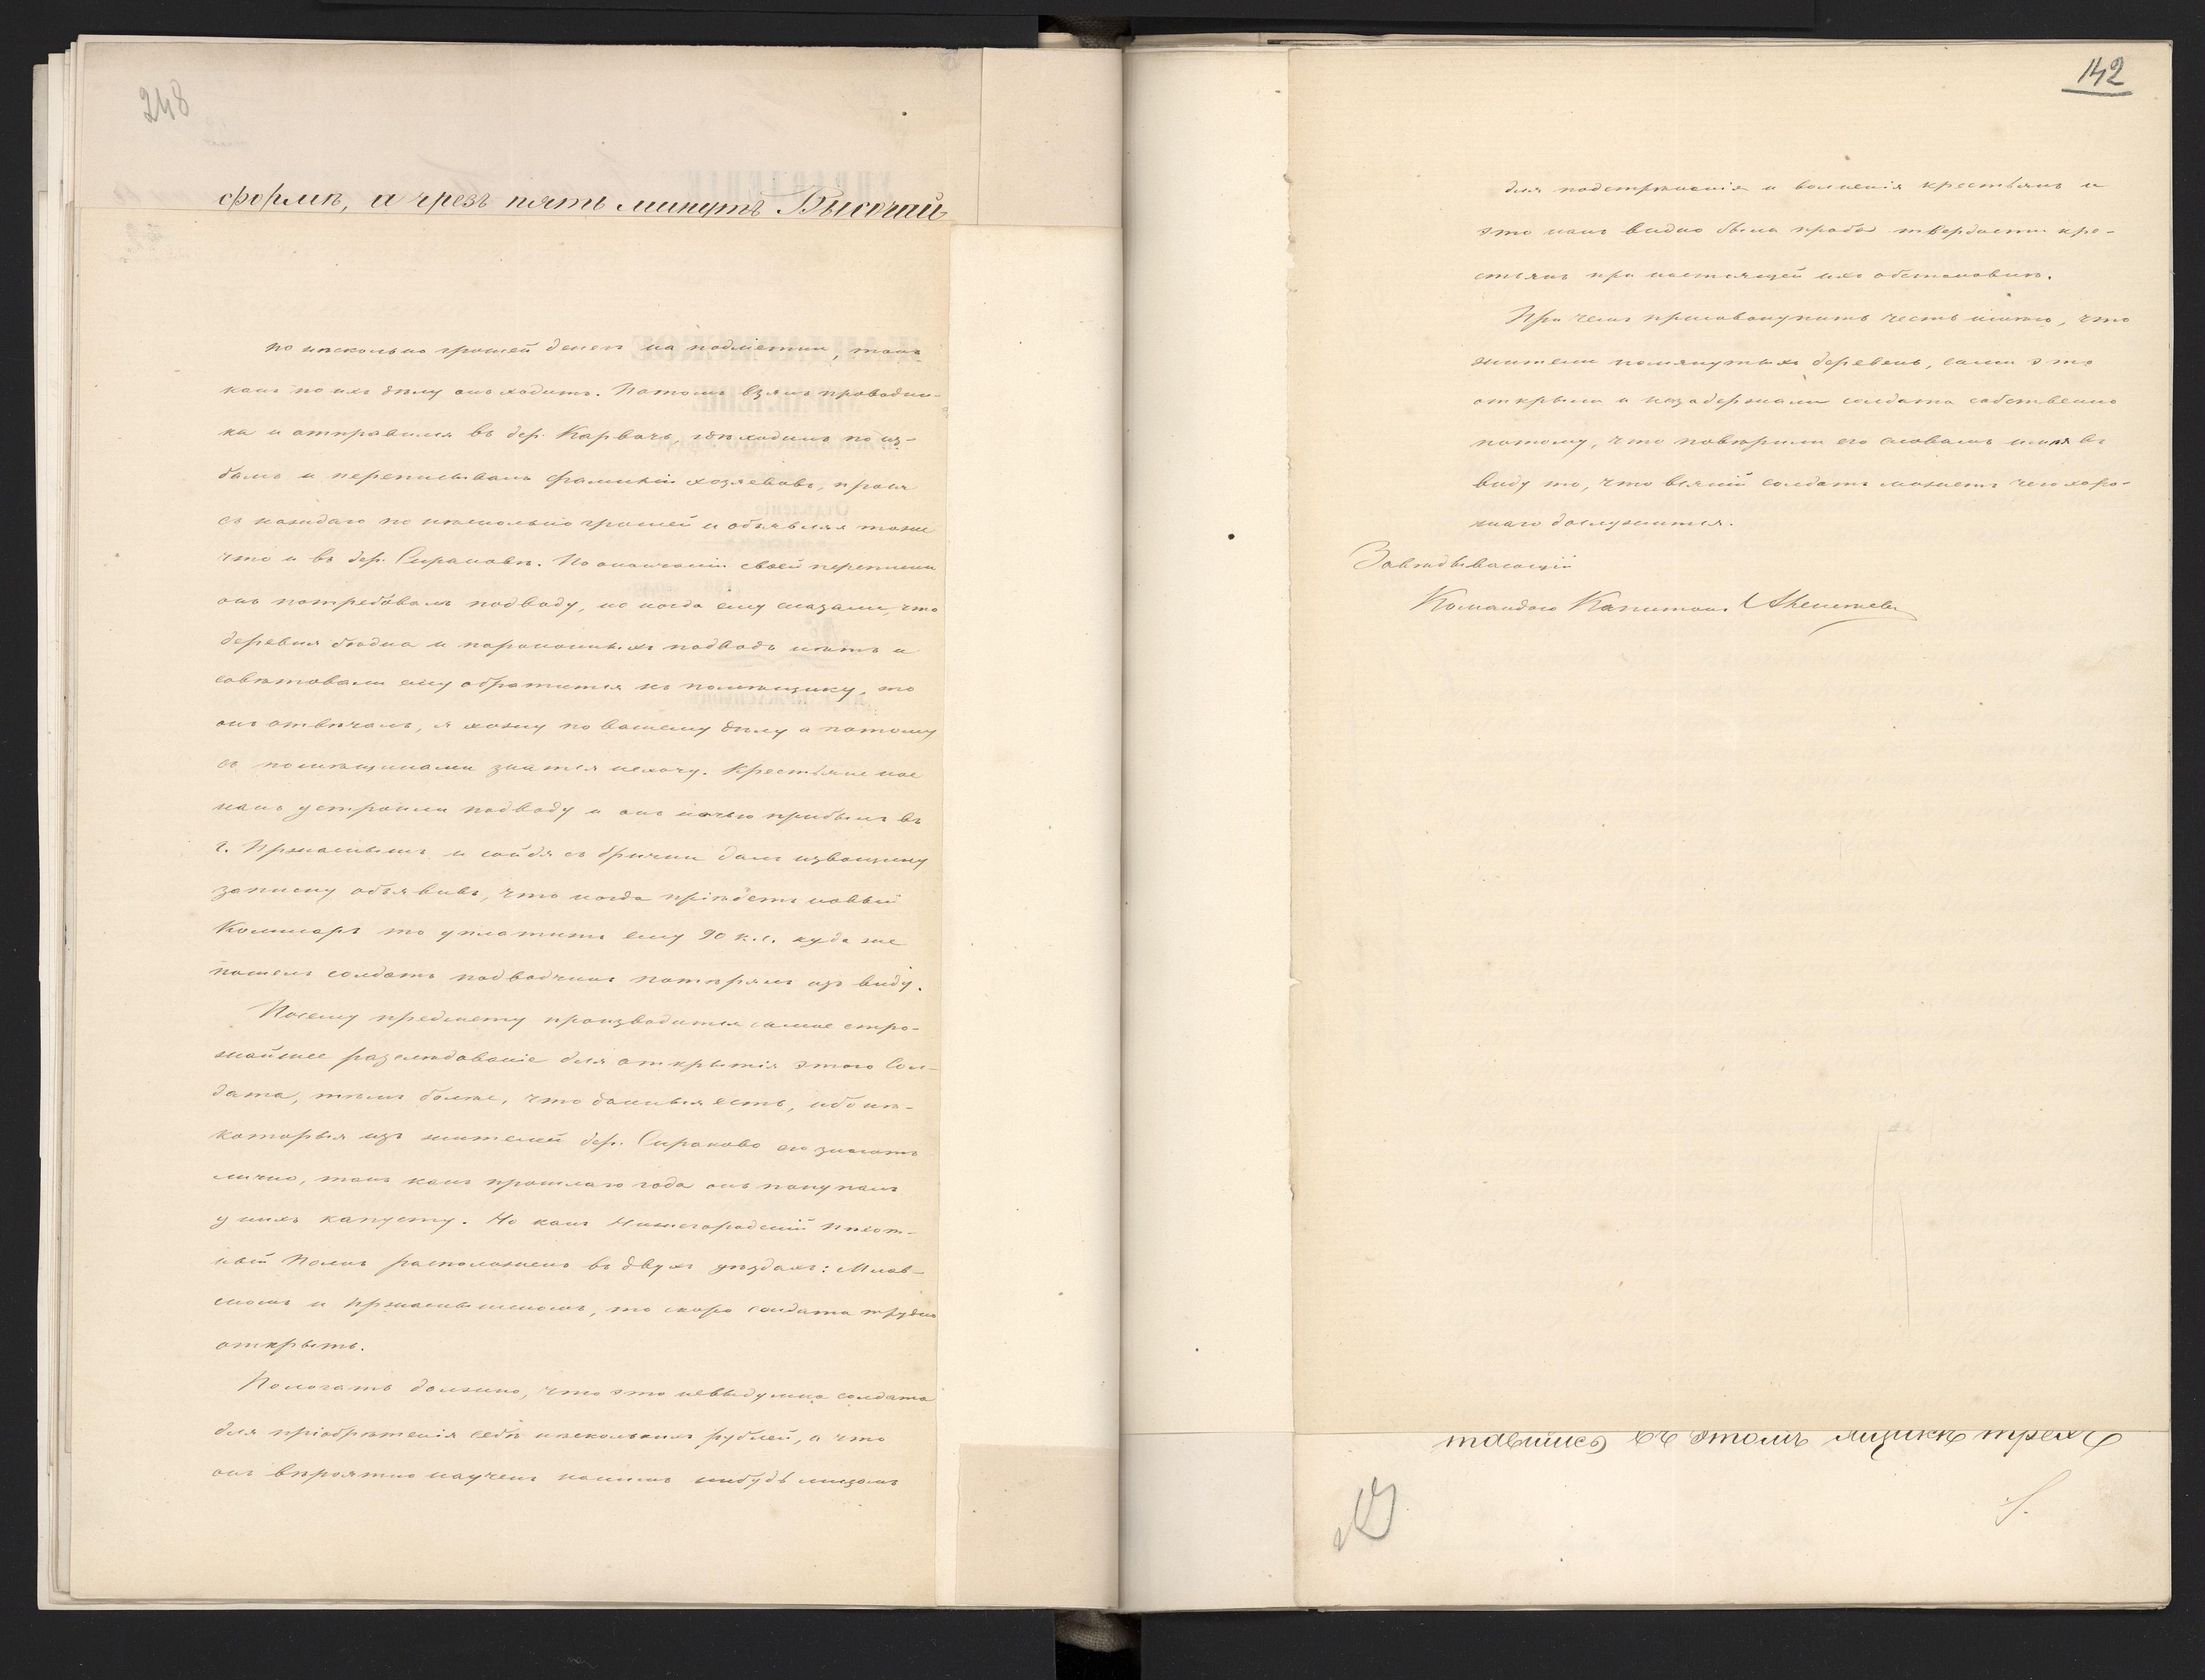 248
формѣ, а чрезъ пять минутъ Высочай
по нѣсколько грошей денегъ на подметки, такъ
какъ по ихъ дѣлу онъ ходитъ. Потомъ взялъ проводни-
ка и отправился въ дер. Карвачъ, гдѣ ходилъ по из-
бамъ и переписывалъ фамиліи хозяевовъ, прося
съ каждаго по нѣсколько грошей и объявляя тоже
что и въ дер. Сираковѣ. По окончаніи своей переписи
онъ потребовалъ подводу, но когда ему сказали, что
деревня бѣдна и пароконныхъ подводъ нѣтъ и
совѣтовали ему обратится къ помѣщику, то
онъ отвѣчалъ, я хожу по вашему дѣлу а потому
съ помѣщиками знатся нехочу. Крестьяне кое
какъ устроили подводу и онъ ночью прибылъ въ
г. Прасныш и сойдя съ брички далъ извощику
записку объявивъ, что когда пріѣдетъ новый
Коммисаръ то уплатитъ ему 90 к.с. куда же
пошелъ солдатъ подводчикъ потерялъ изъ виду.
Посему предмету производится самое стро-
жайшее разслѣдованіе для открытія этого Сол-
дата, тѣмъ болѣе, что данныя есть, ибо нѣ-
которыя изъ жителей дер. Сираково его знаютъ
лично, такъ какъ прошлаго года онъ покупалъ
у нихъ капусту. Но какъ Нижегородскій пѣхот-
ный Полкъ расположенъ въ двухъ уѣздахъ: Млав-
скомъ и Праснышскомъ, то скоро солдата трудно
открыть.
Пологать должно, что это невыдумка солдата
для пріобрѣтенія себѣ нѣсколькихъ рублей, а что
онъ вѣроятно наученъ какимъ нибудь лицомъ
142
для подстрѣканія и волненія крестьянъ и
это какъ видно была проба твердости кре-
стьянъ при настоящей ихъ обстановкѣ.
При чемъ присовокупить честь имѣю, что
жители помянутыхъ деревень, сами это
открыли и незадержали солдата собственно
потому, что повѣрили его словамъ имѣя въ
виду то, что всякій солдатъ можетъ чего хоро-
шаго дослужится.
Завѣдывающій
Командою Капитанъ
тавшись въ этомъ ящикѣ трехъ